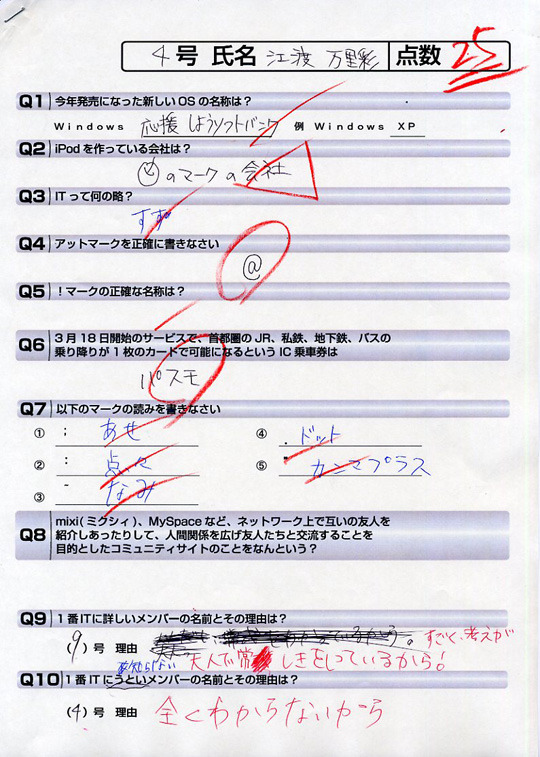 4号 氏名 江渡 万里彩 点数 25
Q1 今年発売になった新しいOSの名称は?
Windows 応援しようソフトバンク 例 Windows XP
Q2 iPodを作っている会社は?
のマークの会社
Q3 ITって何の略?
すず
Q4 アットマークを正確に書きなさい
@
Q5 !マークの正確な名称は?
Q6 3月18日開始のサービスで、首都圏のJR、私鉄、地下鉄、バスの
乗り降りが1枚のカードで可能になるというIC乗車券は
パスモ
Q7 以下のマークの読みを書きなさい
① ; あせ ④ . ドット
② : 点々 ⑤ カンマプラス
③ ~ なみ
Q8 mixi(ミクシィ)、MySpaceなど、ネットワーク上で互いの友人を
紹介しあったりして、人間関係を広げ友人たちと交流することを
目的としたコミュニティサイトのことをなんという?
Q9 1番ITに詳しいメンバーの名前とその理由は?
(9)号 理由 すごく、考えが
大人で常しきをしっているから!
Q10 1番ITにうといメンバーの名前とその理由は?
(4)号 理由 全くわからないから